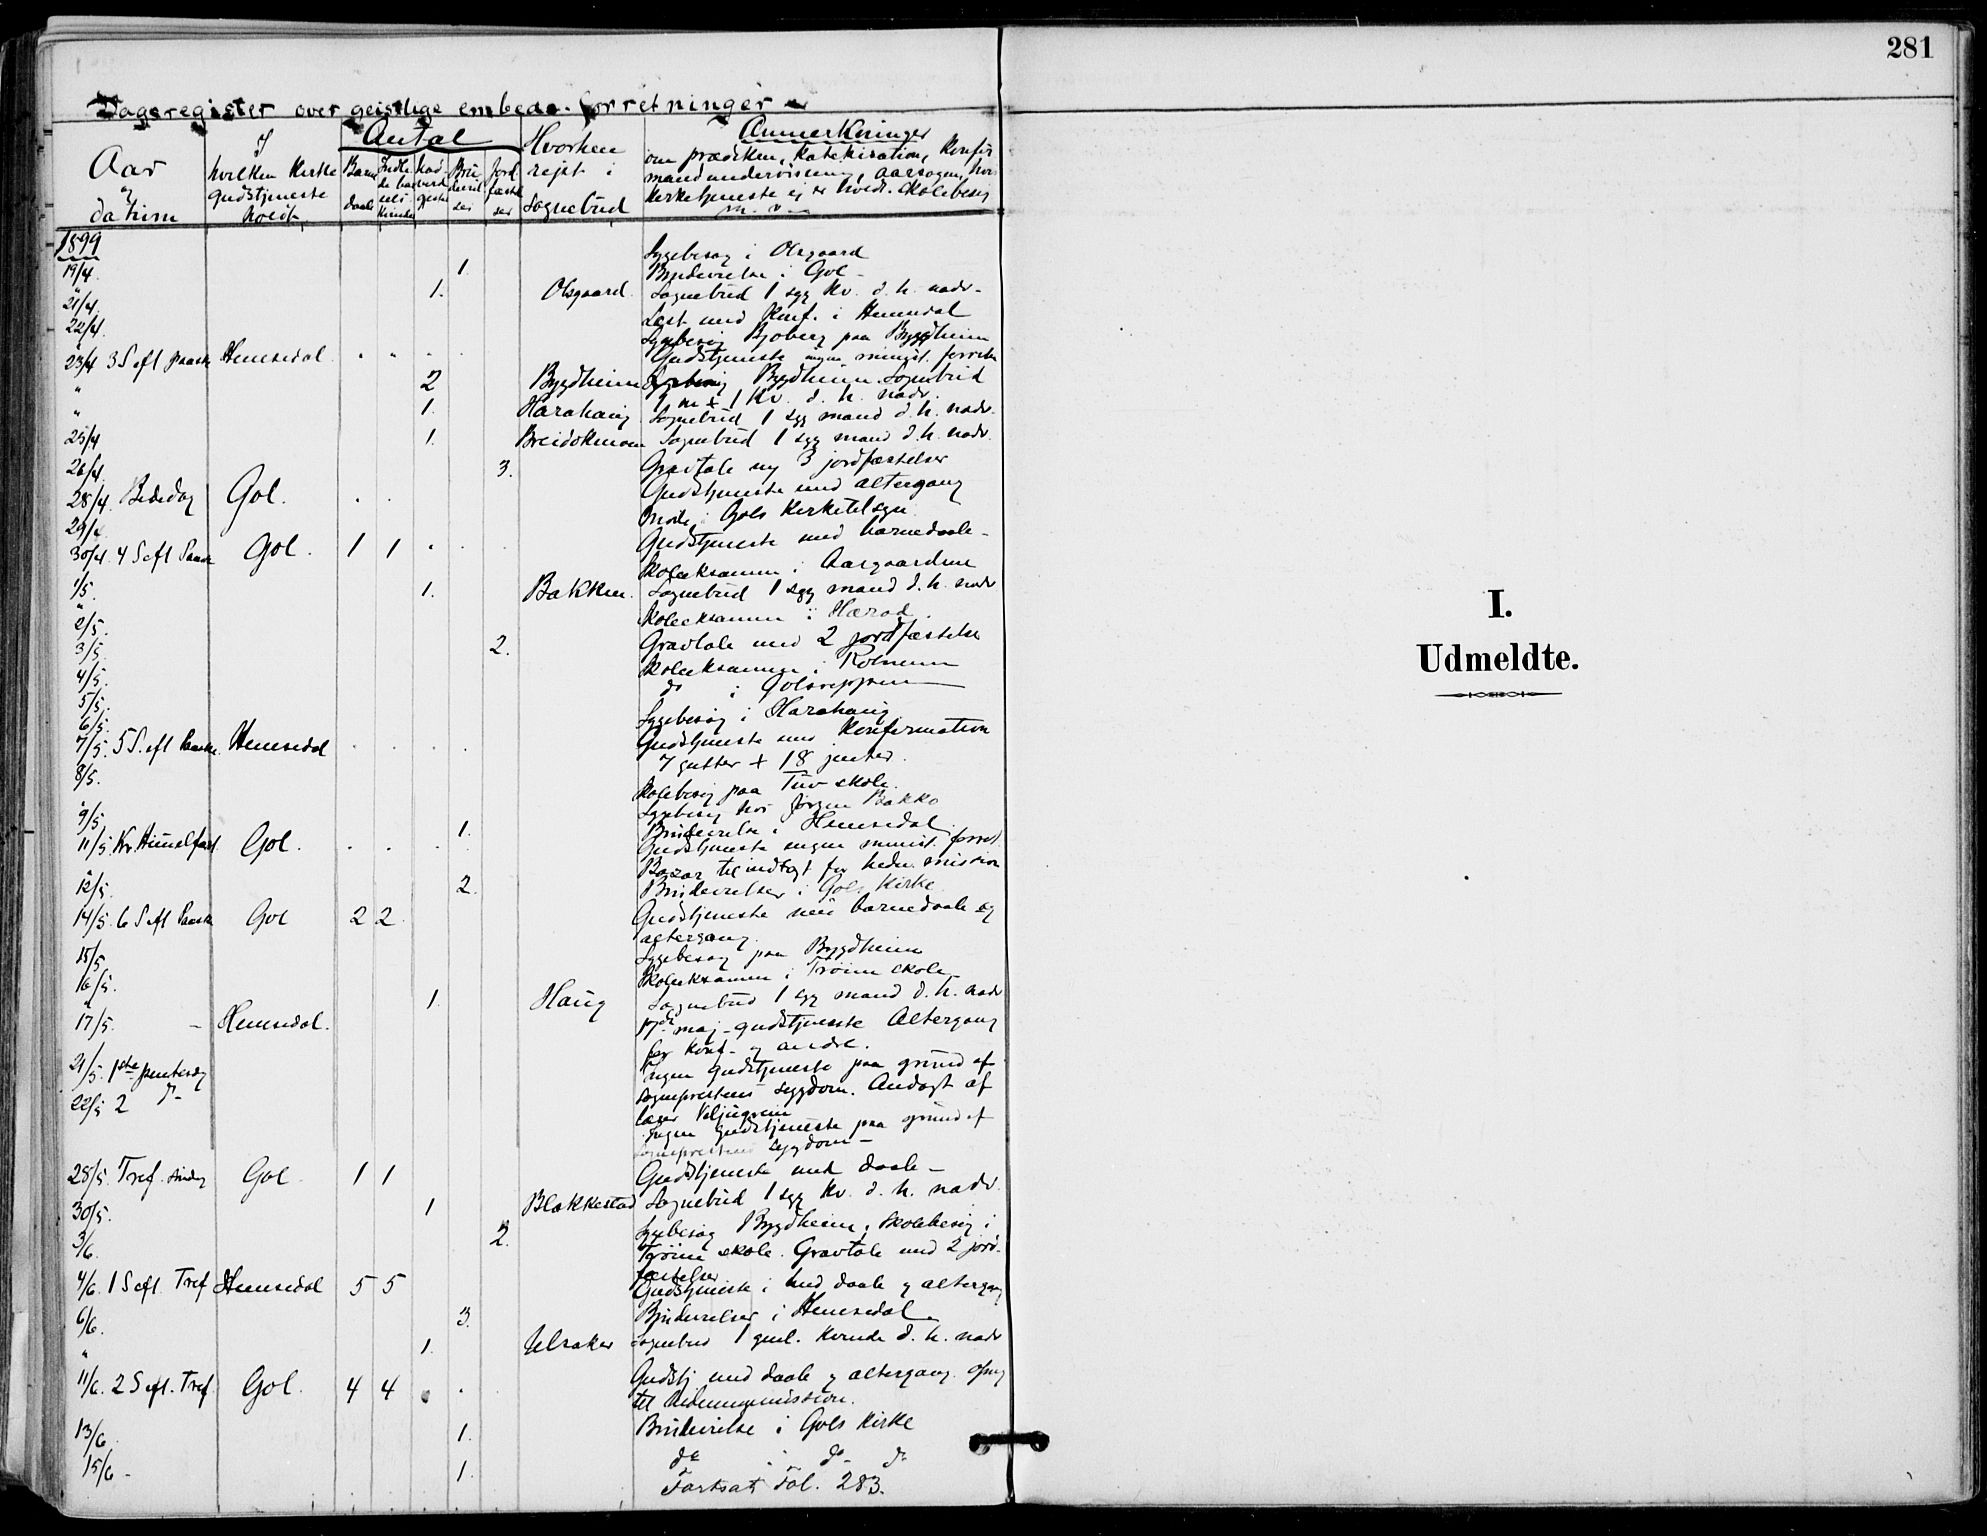 Dagsregister over geistlige embeds-forretninger
Aar og datum
I hvilken kirke gudstjeneste holdt
Antal
Barnedaab
Indledte barselkvinder
Nadverdgjester
Brudevielser
Jordfæstelser
Hvorhen rejst i sognebud
Anmerkninger
om prædiken, katekisation, konfir
mandundervisning, aarsagen, hvis
kirketjeneste ej er holdt. skolebesøg
m. v.
1899
Sygebesøg i Olsgaard
19/4. 1. Brudevielse i Gol -
" 1. Olsgaard. Sognebud 1 syg kv. d. h. nadv.
21/4. Læst med konf. i Hemsedal
22/4. Sygebesøg Bjøberg paa Bygdheim
23/4 3 S eft paask Hemsedal Gudstjeneste ingen minist. forretn
" 2 Bygdheim Sygebesøg Bygdheim. Sognebud
1 m + 1 kv. d. h. nadv.
" 1. Harahaug Sognebud 1 syg mand d. h. nadv.
25/4 1. Breidokmoen Sognebud 1 syg mand d. h. nadv.
26/4 3. Gravtale og 3 jordfæstelser
28/4. Bededag Gol. Gudstjeneste med altergang
29/4 Møde i Gols kirketilsyn
30/4. 4 S eft Paask Gol. 1 1 Gudstjeneste med barnedaab -
1/5. Skoleeksamen i Aasgaardene
" 1. Bakken. Sognebud 1 syg mand d. h. nadv
2/5. Skoleeksamen i Hærad.
3/5. 2. Gravtale med 2 jordfæstelser
4/5. Skoleeksamen i
5/5. do i Golreppen
6/5. Sygebesøg i Harahaug
7/5. 5 S. eft Paaske. Hemsedal Gudstjeneste med konfirmation
7 gutter + 18 jenter.
8/5. Skolebesøg paa Tuv skole.
" Sygebesøg hos Jørgen Bakko
9/5. 1. Brudevielse i Hemsedal.
11/5. Kr. Himmelfart. Gol. Gudstjeneste ingen minist. forret.
" Bazar til indtægt for hedn. mission
12/5. 2. Brudevielser i Gols kirke
14/5. 6 S eft Paask Gol 2 2. Gudstjeneste med barnedaab og
altergang.
15/5 Sygebesøg paa Bygdheim
16/5. Skoleeksamen i Trøim skole
" 1. Haug Sognebud 1 syg mand d. h. nadv
17/5. - Hemsedal. 17de maj-gudstjeneste Altergang
for konf- og andre.
21/5. 1ste pentedag Ingen gudstjeneste paa grund af
sogneprestens sygdom. Andagt af
lærer
22/5 2 do - Ingen gudstjeneste paa grund af
sogneprestens sygdom -
28/5. Tref. søndag Gol 1 1 Gudstjeneste med daab -
30/5. 1 Blakkestad Sognebud 1 syg kv. d. h. nadv.
3/6. 2. Sygebesøg Bygdheim, skolebesøg i
Trøim skole. Gravtale med 2 jord-
fæstelser
4/6. 1 S eft. Tref Hemsedal 5 5 Gudstjeneste i med daab og altergang
6/6. 3. Brudevielser i Hemsedal.
" 1. Ulsaker Sognebud 1 gml. kvinde d. h. nadv
11/6. 2 S eft. Tref. Gol. 4 4 Gudstj med daab og altergang.
til hedningemission.
13/6. 1. Brudevielse i Gols kirke
15/6 - 1. do - do - do
Fortsat Fol. 283.
281
I.
Udmeldte.